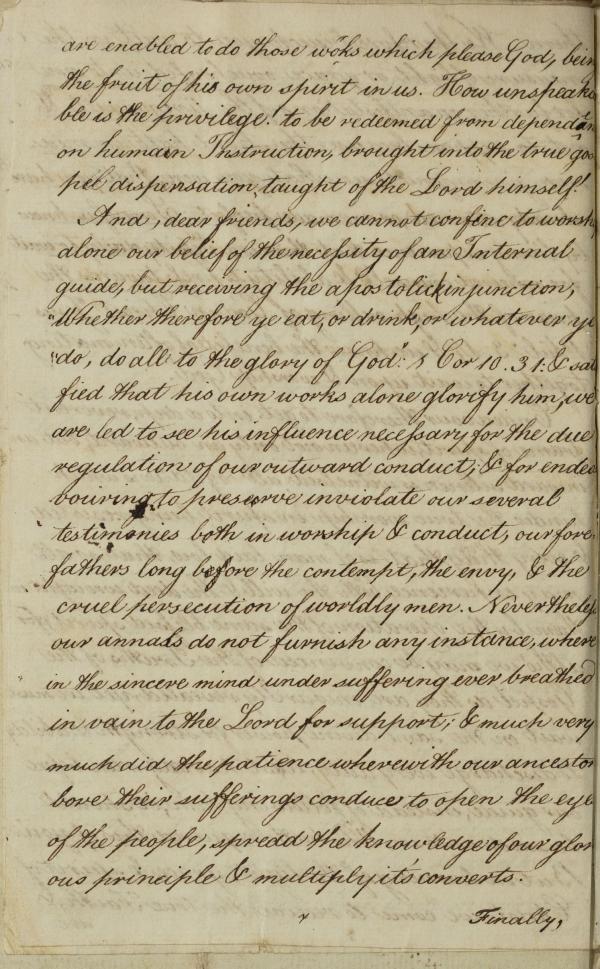 are enabled to do those woks which please God, bein
the fruit of his own spirit in us. How unspeaka
ble is the privilege! to be redeemed from dependan
on humain Instruction, brought into the true gos
pel dispensation, taught of the Lord himself!
And, dear friends, we cannot confine to worshi
alone our belief of the necessity of an Internal
guide, but receiving the apostolick injunction,
"Whether therefore ye eat, or drink, or whatever ye
"do, do all to the glory of God": 1 Cor 10. 31: & sat
fied that his own works alone glorify him, we
are led to see his influence necessary for the due
regulation of our outward conduct; & for endea
bouring to preserve inviolate our several
testimonies both in worship & conduct, our fore
fathers long before the contempt, the envy, & the
cruel persecution of worldly men. Nevertheless
our annals do not furnish any instance, where
in the sincere mind under suffering ever breathed
in vain to the Lord for support; & much very
much did the patience wherewith our ancestor
bore their sufferings conduce to open the eye
of the people, spredd the knowledge of our glori
ous principle & multiply it's converts.
Finally,